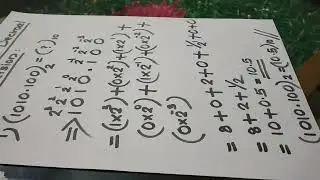 Decimal
1) (1010.100)₂ = (?)₁₀
2³ 2² 2¹ 2⁰ 2⁻¹ 2⁻² 2⁻³
⇒ 1010.100
= (1×2³)+(0×2²)+(1×2¹)+
(0×2⁰)+(1×2⁻¹)+(0×2⁻²)+
(0×2⁻³)
= 8+0+2+0+1/2+0+0
= 8+2+1/2
= 10+0.5=10.5
(1010.100)₂=(10.5)₁₀//